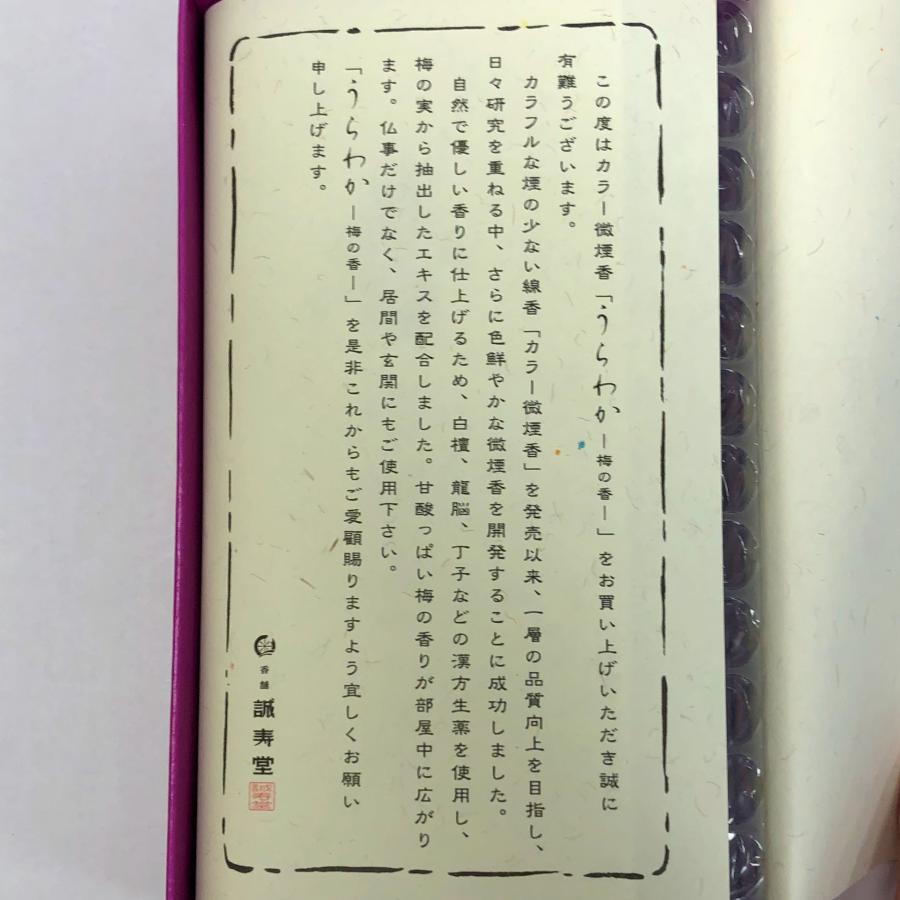 この度はカラー微煙香「うらわか ー梅の香ー」をお買い上げいただき誠に
有難うございます。
カラフルな煙の少ない線香「カラー微煙香」を発売以来、一層の品質向上を目指し、
日々研究を重ねる中、さらに色鮮やかな微煙香を開発することに成功しました。
自然で優しい香りに仕上げるため、白檀、龍脳、丁子などの漢方生薬を使用し、
梅の実から抽出したエキスを配合しました。甘酸っぱい梅の香りが部屋中に広がり
ます。仏事だけでなく、居間や玄関にもご使用下さい。
「うらわか ー梅の香ー」を是非これからもご愛顧賜りますよう宜しくお願い
申し上げます。
香舗
誠寿堂